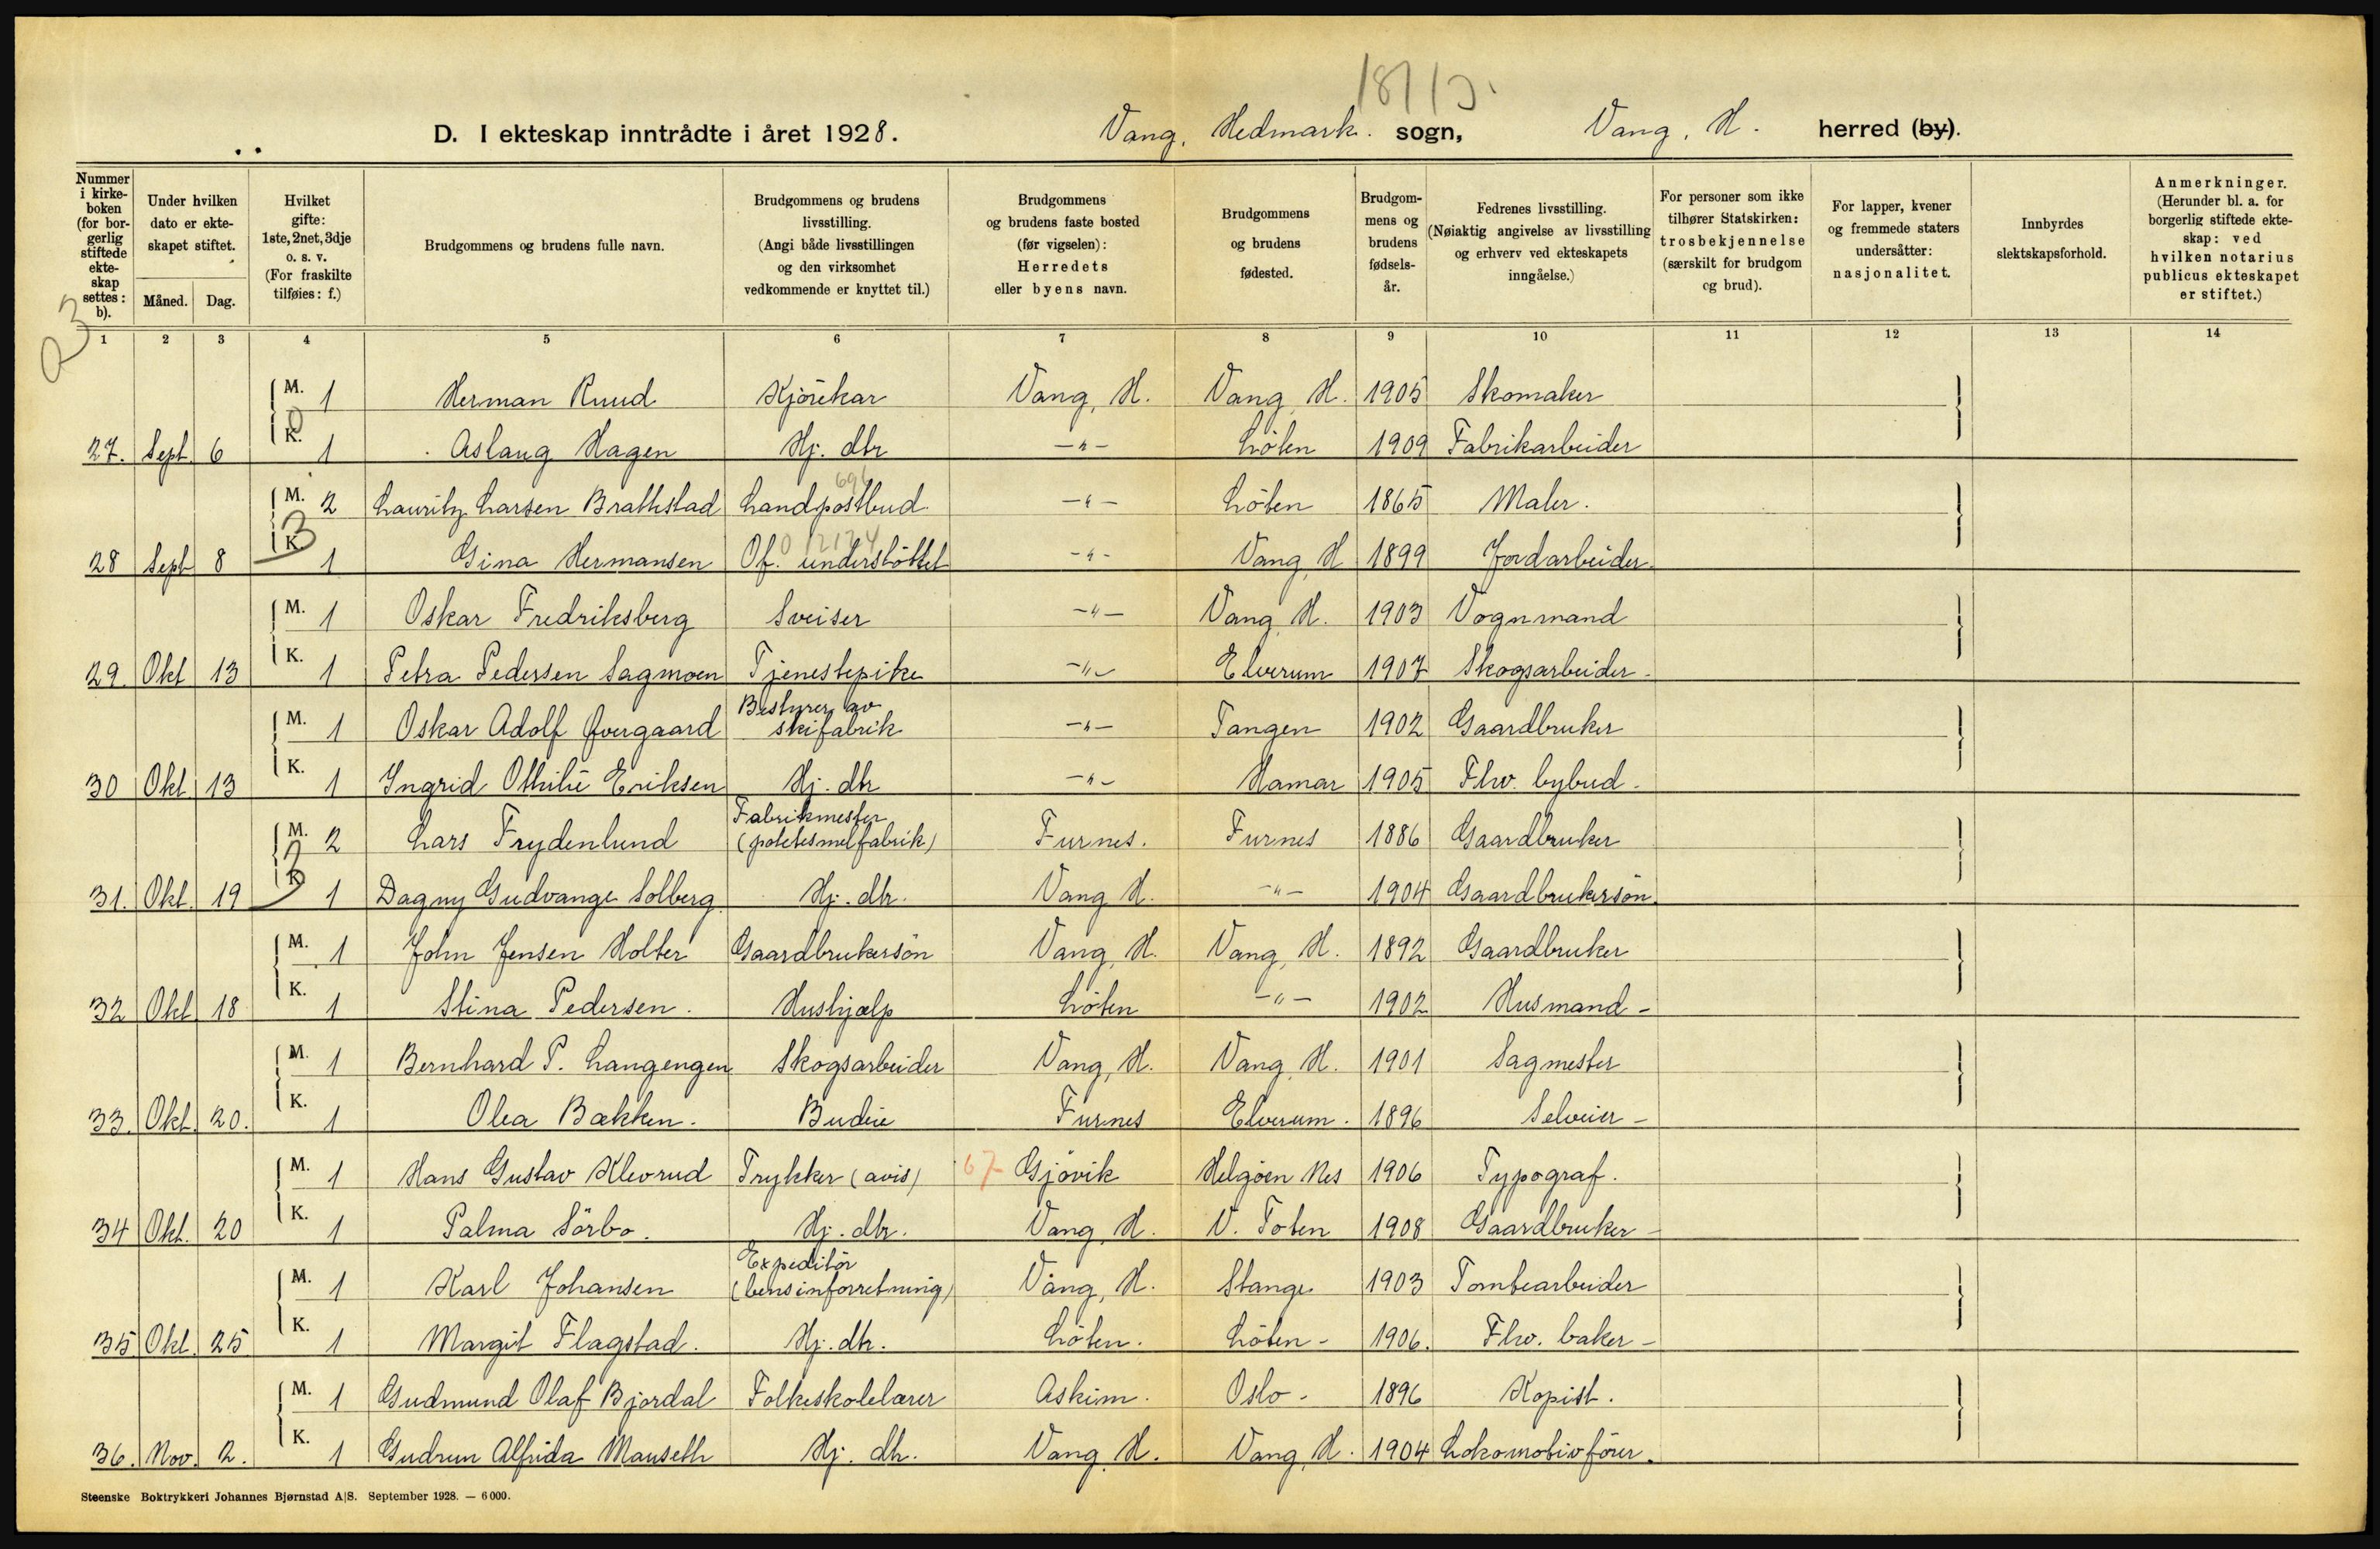 18/13.
D. I ekteskap inntrådte i året 1928. Vang, Hedmark. sogn, Vang, H. herred (by).
Nummer i kirkeboken (for borgerlig stiftede ekteskap settes: b).
Under hvilken dato er ekteskapet stiftet.
Måned. Dag.
Hvilket gifte: 1ste, 2net, 3dje o. s. v. (For fraskilte tilføies: f.)
Brudgommens og brudens fulle navn.
Brudgommens og brudens livsstilling. (Angi både livsstillingen og den virksomhet vedkommende er knyttet til.)
Brudgommens og brudens faste bosted (før vigselen): Herredets eller byens navn.
Brudgommens og brudens fødested.
Brudgommens og brudens fødselsår.
Fedrenes livsstilling. (Nøiaktig angivelse av livsstilling og erhverv ved ekteskapets inngåelse.)
For personer som ikke tilhører Statskirken: trosbekjennelse (særskilt for brudgom og brud).
For lapper, kvener og fremmede staters undersåtter: nasjonalitet.
Innbyrdes slektskapsforhold.
Anmerkninger. (Herunder bl. a. for borgerlig stiftede ekteskap: ved hvilken notarius publicus ekteskapet er stiftet.)
1 2 3 4 5 6 7 8 9 10 11 12 13 14
M. 1 Herman Ruud Kjörekar Vang, H. Vang, H. 1905 Skomaker
27. Sept. 6 K. 1 Aslaug Hagen Hj. dtr -"- Löten 1909 Fabrikarbeider
M. 2 Lauritz Larsen Brathstad Landpostbud -"- Löten 1865 Maler.
28 Sept 8 K. 1 Gina Hermansen Of. understöttet -"- Vang, H 1899 Jordarbeider.
M. 1 Oskar Fredriksberg Sveiser -"- Vang, H. 1903 Vognmand
29. Okt 13 K. 1 Petra Pedersen Sagmoen Tjenestepike -"- Elverum 1907 Skogsarbeider.
M. 1 Oskar Adolf Øvergaard Bestyrer av skifabrik -"- Tangen 1902 Gaardbruker
30 Okt. 13 K. 1 Ingrid Othilie Eriksen Hj. dtr -"- Hamar 1905 Fhv. bybud.
M. 2 Lars Frydenlund Fabrikmester (potetesmelfabrik) Furnes. Furnes 1886 Gaardbruker
31. Okt. 19 K 1 Dagny Gudvange Solberg. Hj. dtr. Vang H. -"- 1904 Gaardbrukersön.
M. 1 John Jensen Holter Gaardbrukersön Vang, H. Vang, H. 1892 Gaardbruker
32 Okt 18 K. 1 Stina Pedersen. Hushjælp Löten -"- 1902 Husmand -
M. 1 Bernhard P. Langengen Skogsarbeider Vang, H. Vang, H. 1901 Sagmester
33. Okt. 20. K. 1 Olea Bækken. Budeie Furnes Elverum. 1896 Selveier -
M. 1 Hans Gustav Klevrud Trykker (avis) 67 Gjövik Helgöen Nes 1906 Typograf.
34 Okt. 20 K. 1 Palma Sörbo. Hj. dtr. Vang, H. V. Toten 1908 Gaardbruker -
M. 1 Karl Johansen Expeditör (bensinforretning) Vang, H. Stange 1903 Tomtearbeider
35 Okt. 25 K. 1 Margit Flagstad. Hj. dtr. Löten. Löten - 1906. Fhv. baker -
M. 1 Gudmund Olaf Bjordal Folkeskolelærer Askim. Oslo - 1896 Kopist.
36. Nov. 2. K. 1 Gudrun Alfrida Mauseth Hj. dtr. Vang, H. Vang, H. 1904 Lokomotivförer.
Steenske Boktrykkeri Johannes Bjørnstad A|S. September 1928. — 6000.